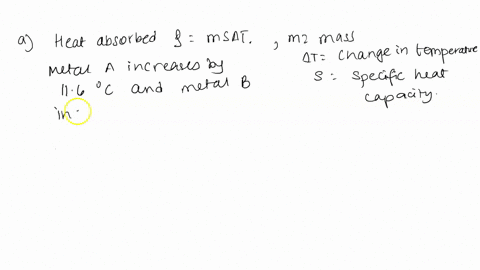 a) Heat absorbed q = msΔT. , m= mass
ΔT= Change in temperature
Metal A increases by
S = Specific heat
11.6 °C and metal B
capacity.
in